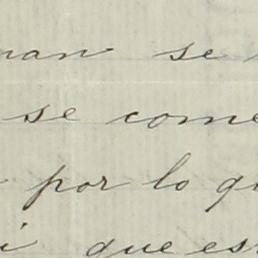 nan se
se come
por lo qu
i que es